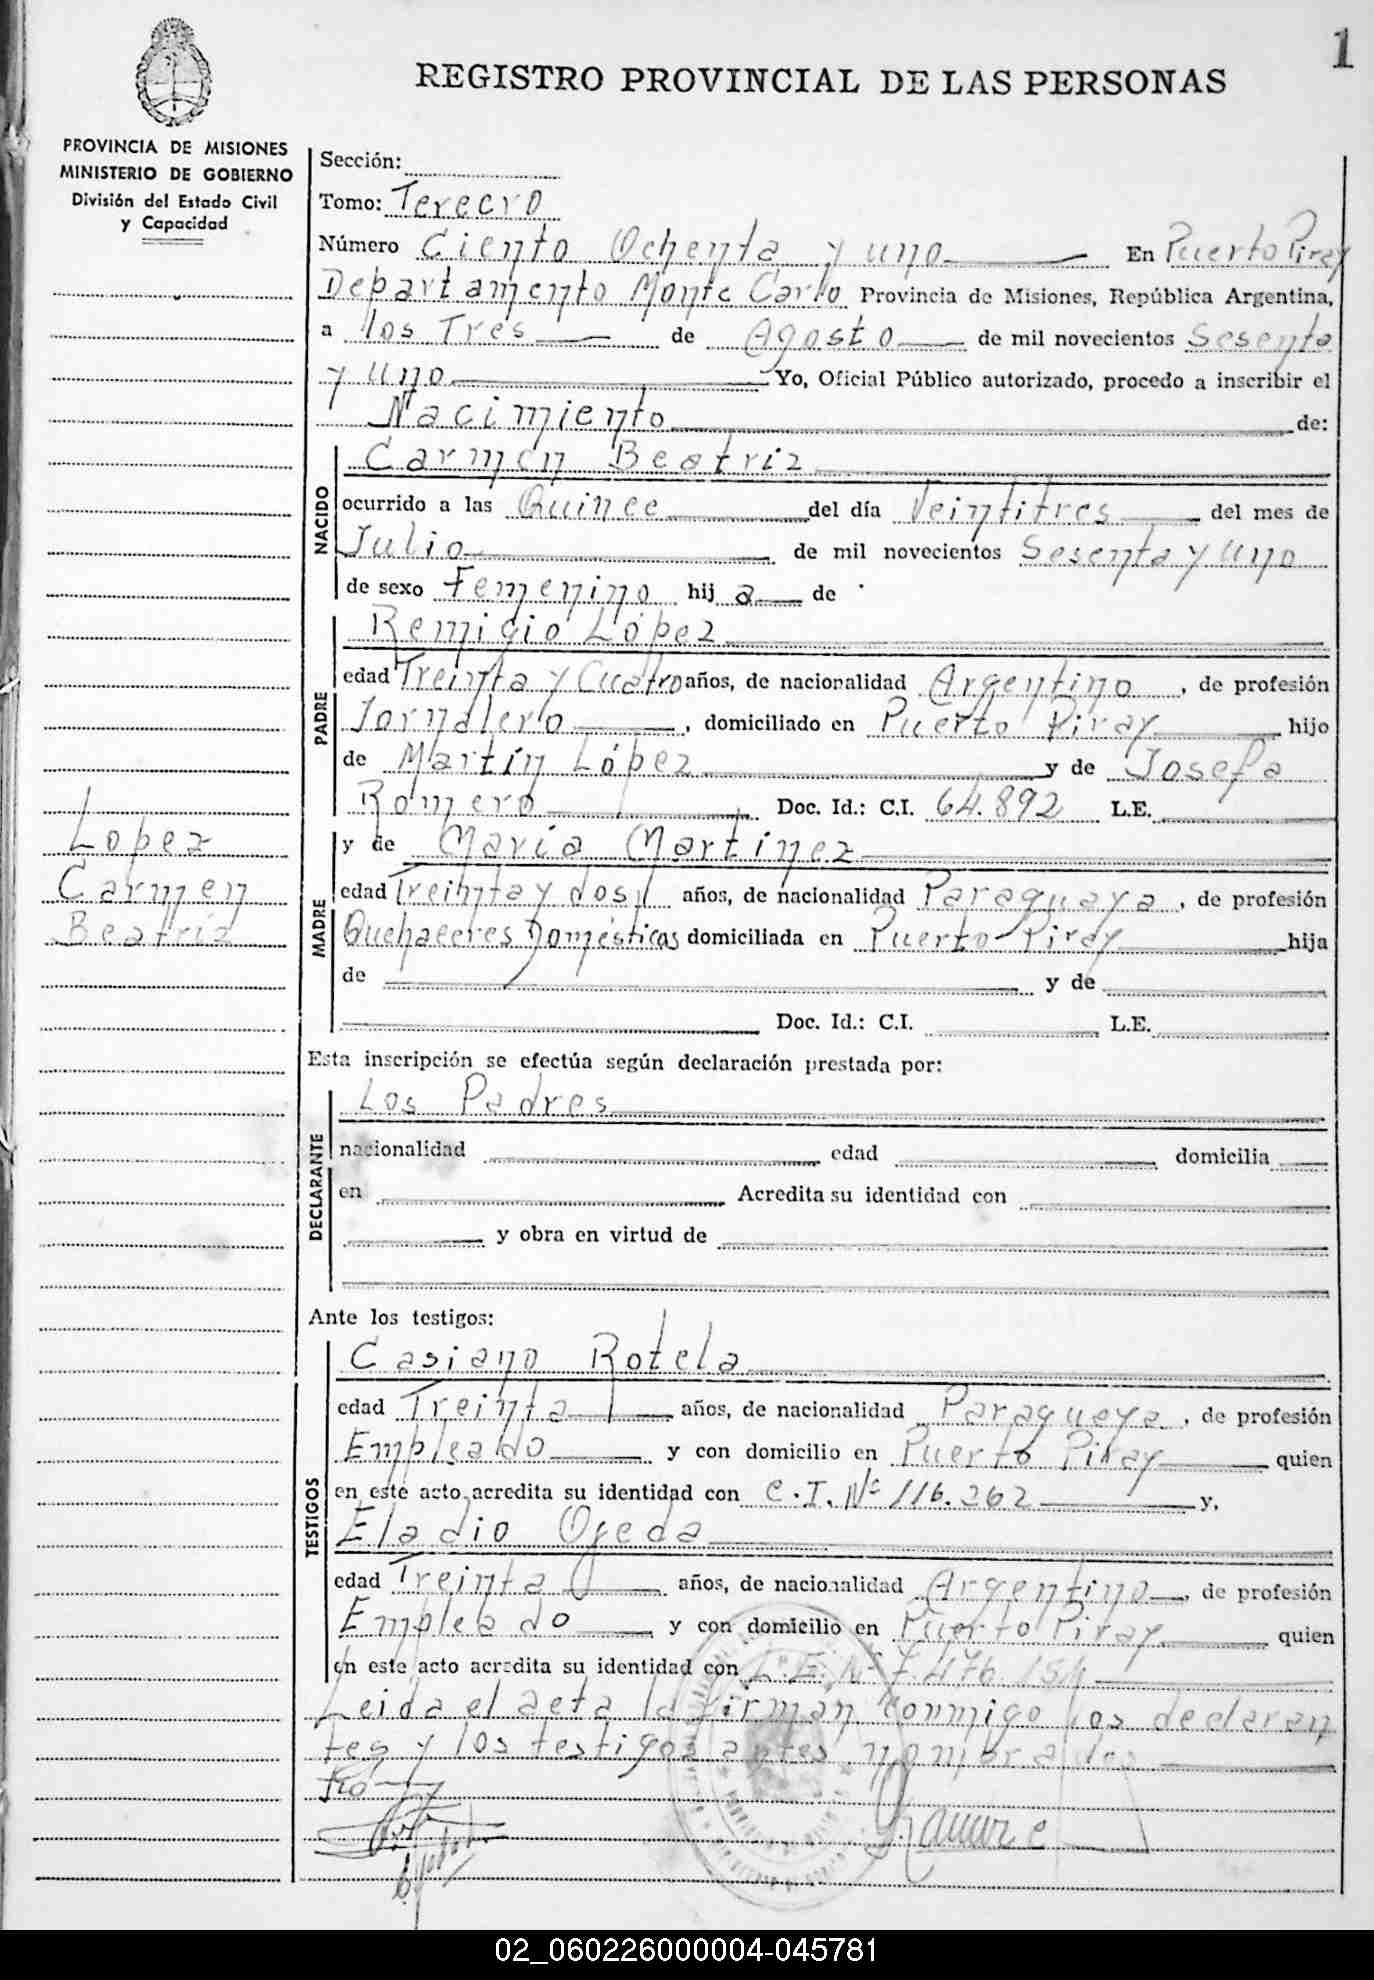 1
REGISTRO PROVINCIAL DE LAS PERSONAS
PROVINCIA DE MISIONES
MINISTERIO DE GOBIERNO
División del Estado Civil
y Capacidad
Sección:
Tomo: Terecro
Número Ciento Ochenta y uno En Puerto Piray
Departamento Monte Carlo Provincia de Misiones, República Argentina,
a los Tres de Agosto de mil novecientos Sesenta
y uno Yo, Oficial Público autorizado, procedo a inscribir el
Nacimiento de:
NACIDO
Carmen Beatriz
ocurrido a las Quince del día Veintitres del mes de
Julio de mil novecientos Sesenta y uno
de sexo Femenino hij a de
PADRE
Remigio López
edad Treinta y Cuatro años, de nacionalidad Argentino, de profesión
Jornalero, domiciliado en Puerto Piray hijo
de Martín López y de Josefa
Romero Doc. Id.: C.I. 64.892 L.E.
Lopez
Carmen
Beatriz
MADRE
y de María Martinez
edad Treinta y dos años, de nacionalidad Paraguaya, de profesión
Quehaceres Domésticas domiciliada en Puerto Piray hija
de y de
Doc. Id.: C.I. L.E.
Esta inscripción se efectúa según declaración prestada por:
DECLARANTE
Los Padres
nacionalidad edad domicilia
en Acredita su identidad con
y obra en virtud de
Ante los testigos:
TESTIGOS
Casiano Rotela
edad Treinta años, de nacionalidad Paragueya, de profesión
Empleado y con domicilio en Puerto Piray quien
en este acto acredita su identidad con C.I. Nº 116.262 y,
Eladio Ojeda
edad Treinta años, de nacionalidad Argentino, de profesión
Empleado y con domicilio en Puerto Piray quien
en este acto acredita su identidad con L.E. Nº 7.476.154
Leida el acta la firman conmigo los declaran
tes y los testigos antes nombrados
02_060226000004-045781